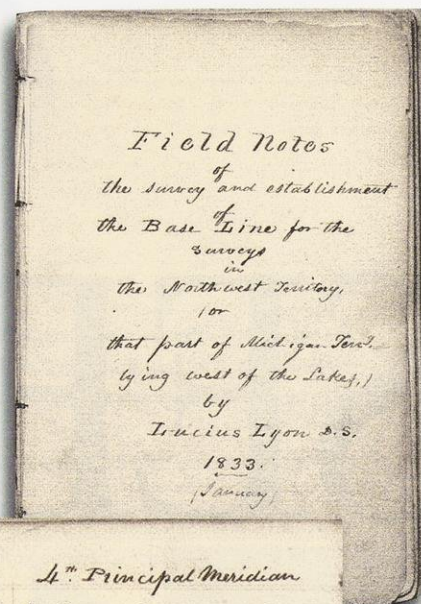 Field Notes
of
the survey and establishment
of
the Base Line for the
surveys
in
the Northwest Territory,
(or
that part of Michigan Terr.
lying west of the Lakes,)
by
Lucius Lyon D.S.
1833.
(January)
4th Principal Meridian